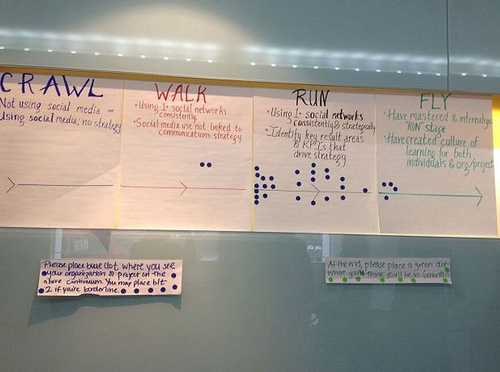 CRAWL
Not using social media or
Using social media; no strategy
WALK
•Using 1+ social networks
consistently
•Social media use not linked to
communications strategy
RUN
•Using 1+ social networks
consistently & strategically
•Identify key result areas
& KPIs that
drive strategy
FLY
•Have mastered & internalize
"RUN" stage
•Have created culture of
learning for both
individuals & org/project
Please place blue dot where you see
your organization or project on the
above continuum. You may place btt
2 if you're borderline.
At the end, please place a green dot
where you think you'll be in 6 months